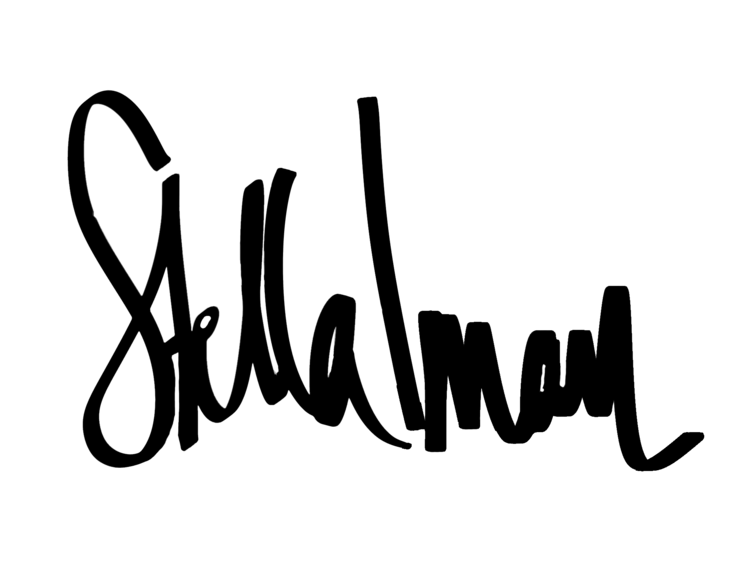 Stella Iman